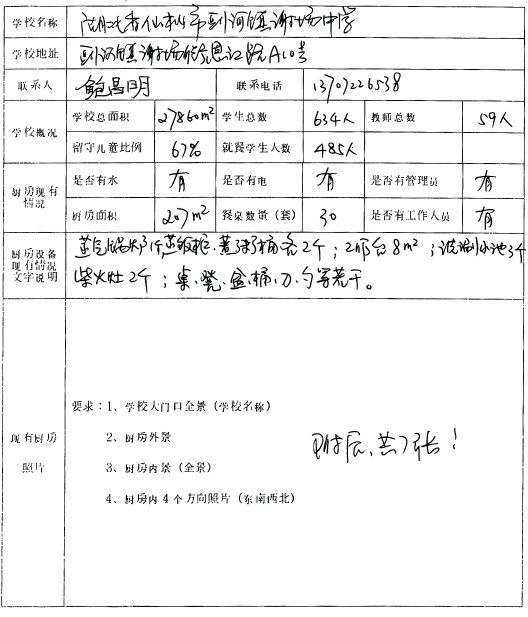 学校名称 湖北省仙桃市郭河镇谢场中学
学校地址 郭河镇谢场 恩江路A10号
联系人 鲍昌明 联系电话 13707226538
学校概况
学校总面积 27860m² 学生总数 634人 教师总数 59人
留守儿童比例 67% 就餐学生人数 485人
厨房现有情况
是否有水 有 是否有电 有 是否有管理员 有
厨房面积 207m² 餐桌数量(套) 30 是否有工作人员 有
厨房设备现有情况文字说明
蒸饭柜、 桶各2个; 台8m²; 池3个
柴火灶2个;桌、凳、盆、桶、刀、勺等若干。
现有厨房照片
要求:1、学校大门口全景(学校名称)
2、厨房外景
3、厨房内景(全景)
4、厨房内4个方向照片(东南西北)
附后、共7张!